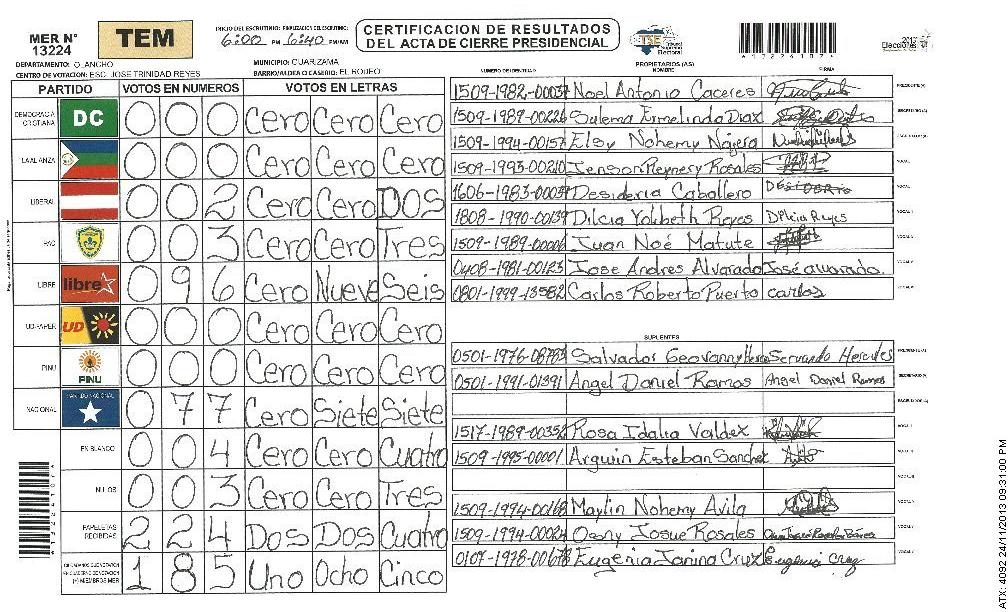 MER N° 13224
TEM
INICIO DEL ESCRUTINIO: 6:00 PM FINALIZACION DEL ESCRUTINIO: 6:40 PM/AM
CERTIFICACION DE RESULTADOS
DEL ACTA DE CIERRE PRESIDENCIAL
TSE Tribunal Supremo Electoral
Elecciones
DEPARTAMENTO: OLANCHO
MUNICIPIO: GUARIZAMA
CENTRO DE VOTACION: ESC. JOSE TRINIDAD REYES
BARRIO/ALDEA O CASERIO: EL RODEO
PARTIDO VOTOS EN NUMEROS VOTOS EN LETRAS
DEMOCRACIA CRISTIANA DC 0 0 0 Cero Cero Cero
LA ALANZA 0 0 0 Cero Cero Cero
LIBERAL 0 0 2 Cero Cero DOS
PAC 0 0 3 Cero Cero Tres
LIBRE libre 0 9 6 Cero Nueve Seis
UD-FAPER UD 0 0 0 Cero Cero Cero
PINU PINU 0 0 0 Cero Cero Cero
NACIONAL PARTIDO NACIONAL 0 7 7 Cero Siete Siete
EN BLANCO 0 0 4 Cero Cero Cuatro
NULOS 0 0 3 Cero Cero Tres
PAPELETAS RECIBIDAS 2 2 4 Dos Dos Cuatro
(+) MIEMBROS MER 1 8 5 Uno Ocho Cinco
PROPIETARIOS (AS)
NUMERO DE IDENTIDAD NOMBRE FIRMA
1509-1982-00037 Noel Antonio Caceres PRESIDENTE(A)
1509-1989-00226 Sulema Ermelinda Diaz SECRETARIO(A)
1509-1994-00157 Elsy Nohemy Najera
1509-1993-00210 Jenson Reynery Rosales
1606-1983-00037 Desideria Caballero
1808-1990-00139 Dilcia Yolibeth Reyes Dilcia Reyes
1509-1989-00006 Juan Noé Matute
0408-1981-00123 Jose Andres Alvarado José alvarado
0801-1999-13582 Carlos Roberto Puerto carlos
SUPLENTES
0501-1976-08783 Salvador Geovanny Servando Hercules PRESIDENTE(A)
0501-1991-01391 Angel Daniel Ramos Angel Daniel Ramos SECRETARIO(A)
1517-1989-00352 Rosa Idalia Valdez
1509-1995-00001 Arguin Esteban Sanchez
1509-1994-00168 Maylin Nohemy Avila
1509-1994-00024 Osny Josue Rosales
0107-1978-00678 Eugenia Janina Cruz Eugenia Cruz
ATX: 4092 24/11/2013 09:31:00 PM